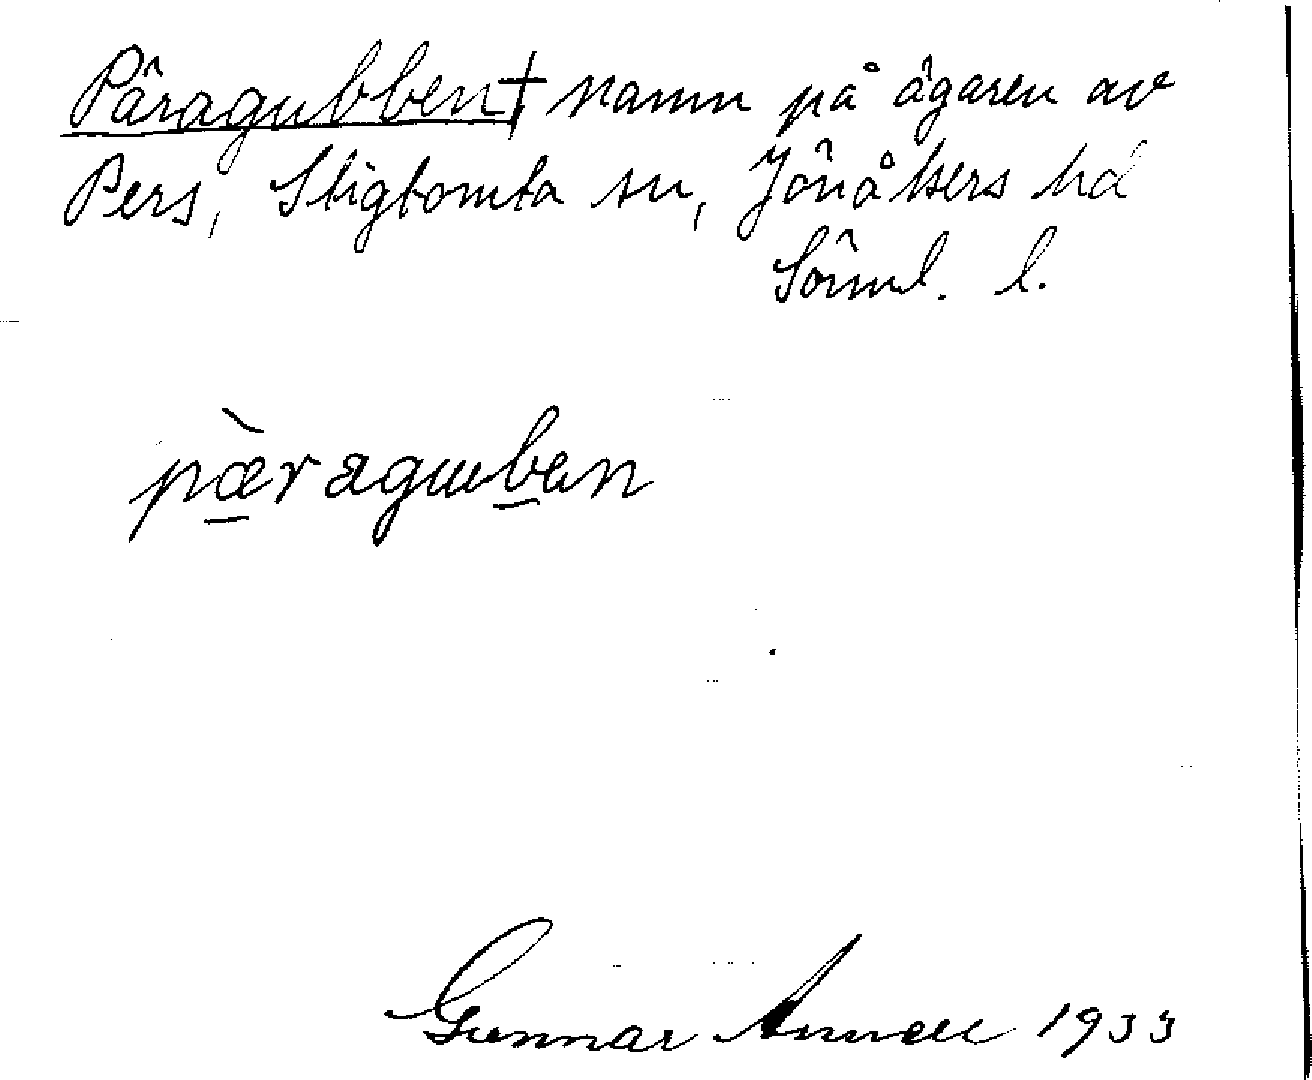 Pâragubben† namn på ägaren av
Pers, Stigtomta sn, Jönåkers hd
Söml. l.
pæ̀raguben
Gunnar Annell 1933